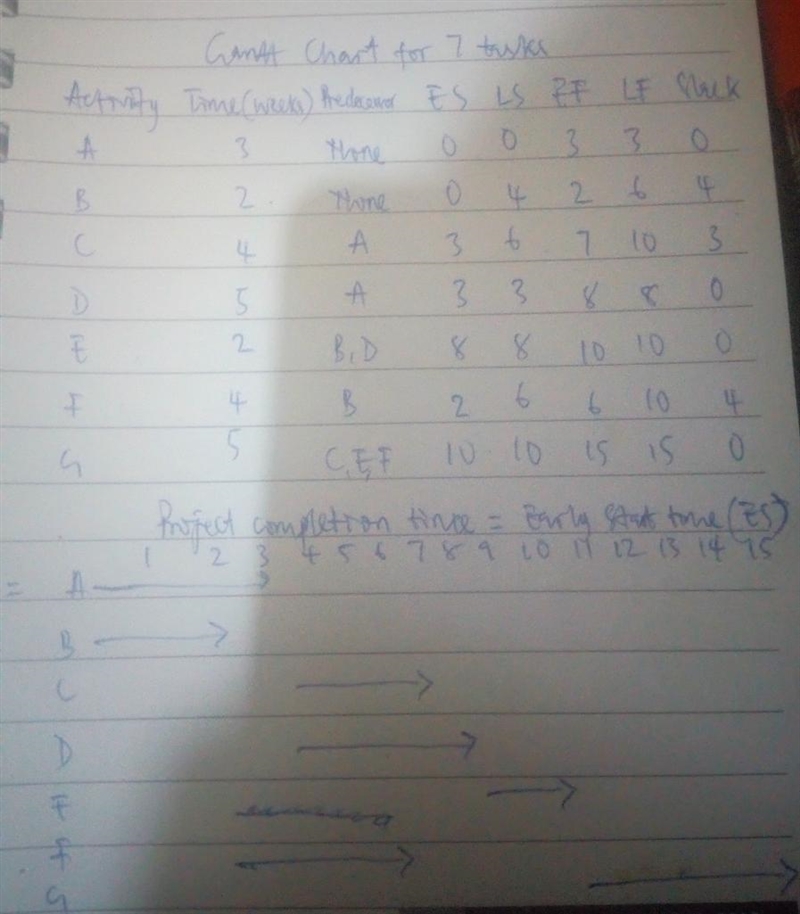 Gantt Chart for 7 tasks
Activity Time (weeks) Predecessor ES LS EF LF Slack
A 3 None 0 0 3 3 0
B 2 None 0 4 2 6 4
C 4 A 3 6 7 10 3
D 5 A 3 3 8 8 0
E 2 B, D 8 8 10 10 0
F 4 B 2 6 6 10 4
G 5 C, E, F 10 10 15 15 0
Project completion time = Early Start time (ES)
1 2 3 4 5 6 7 8 9 10 11 12 13 14 15
= A
B
C
D
E
F
G